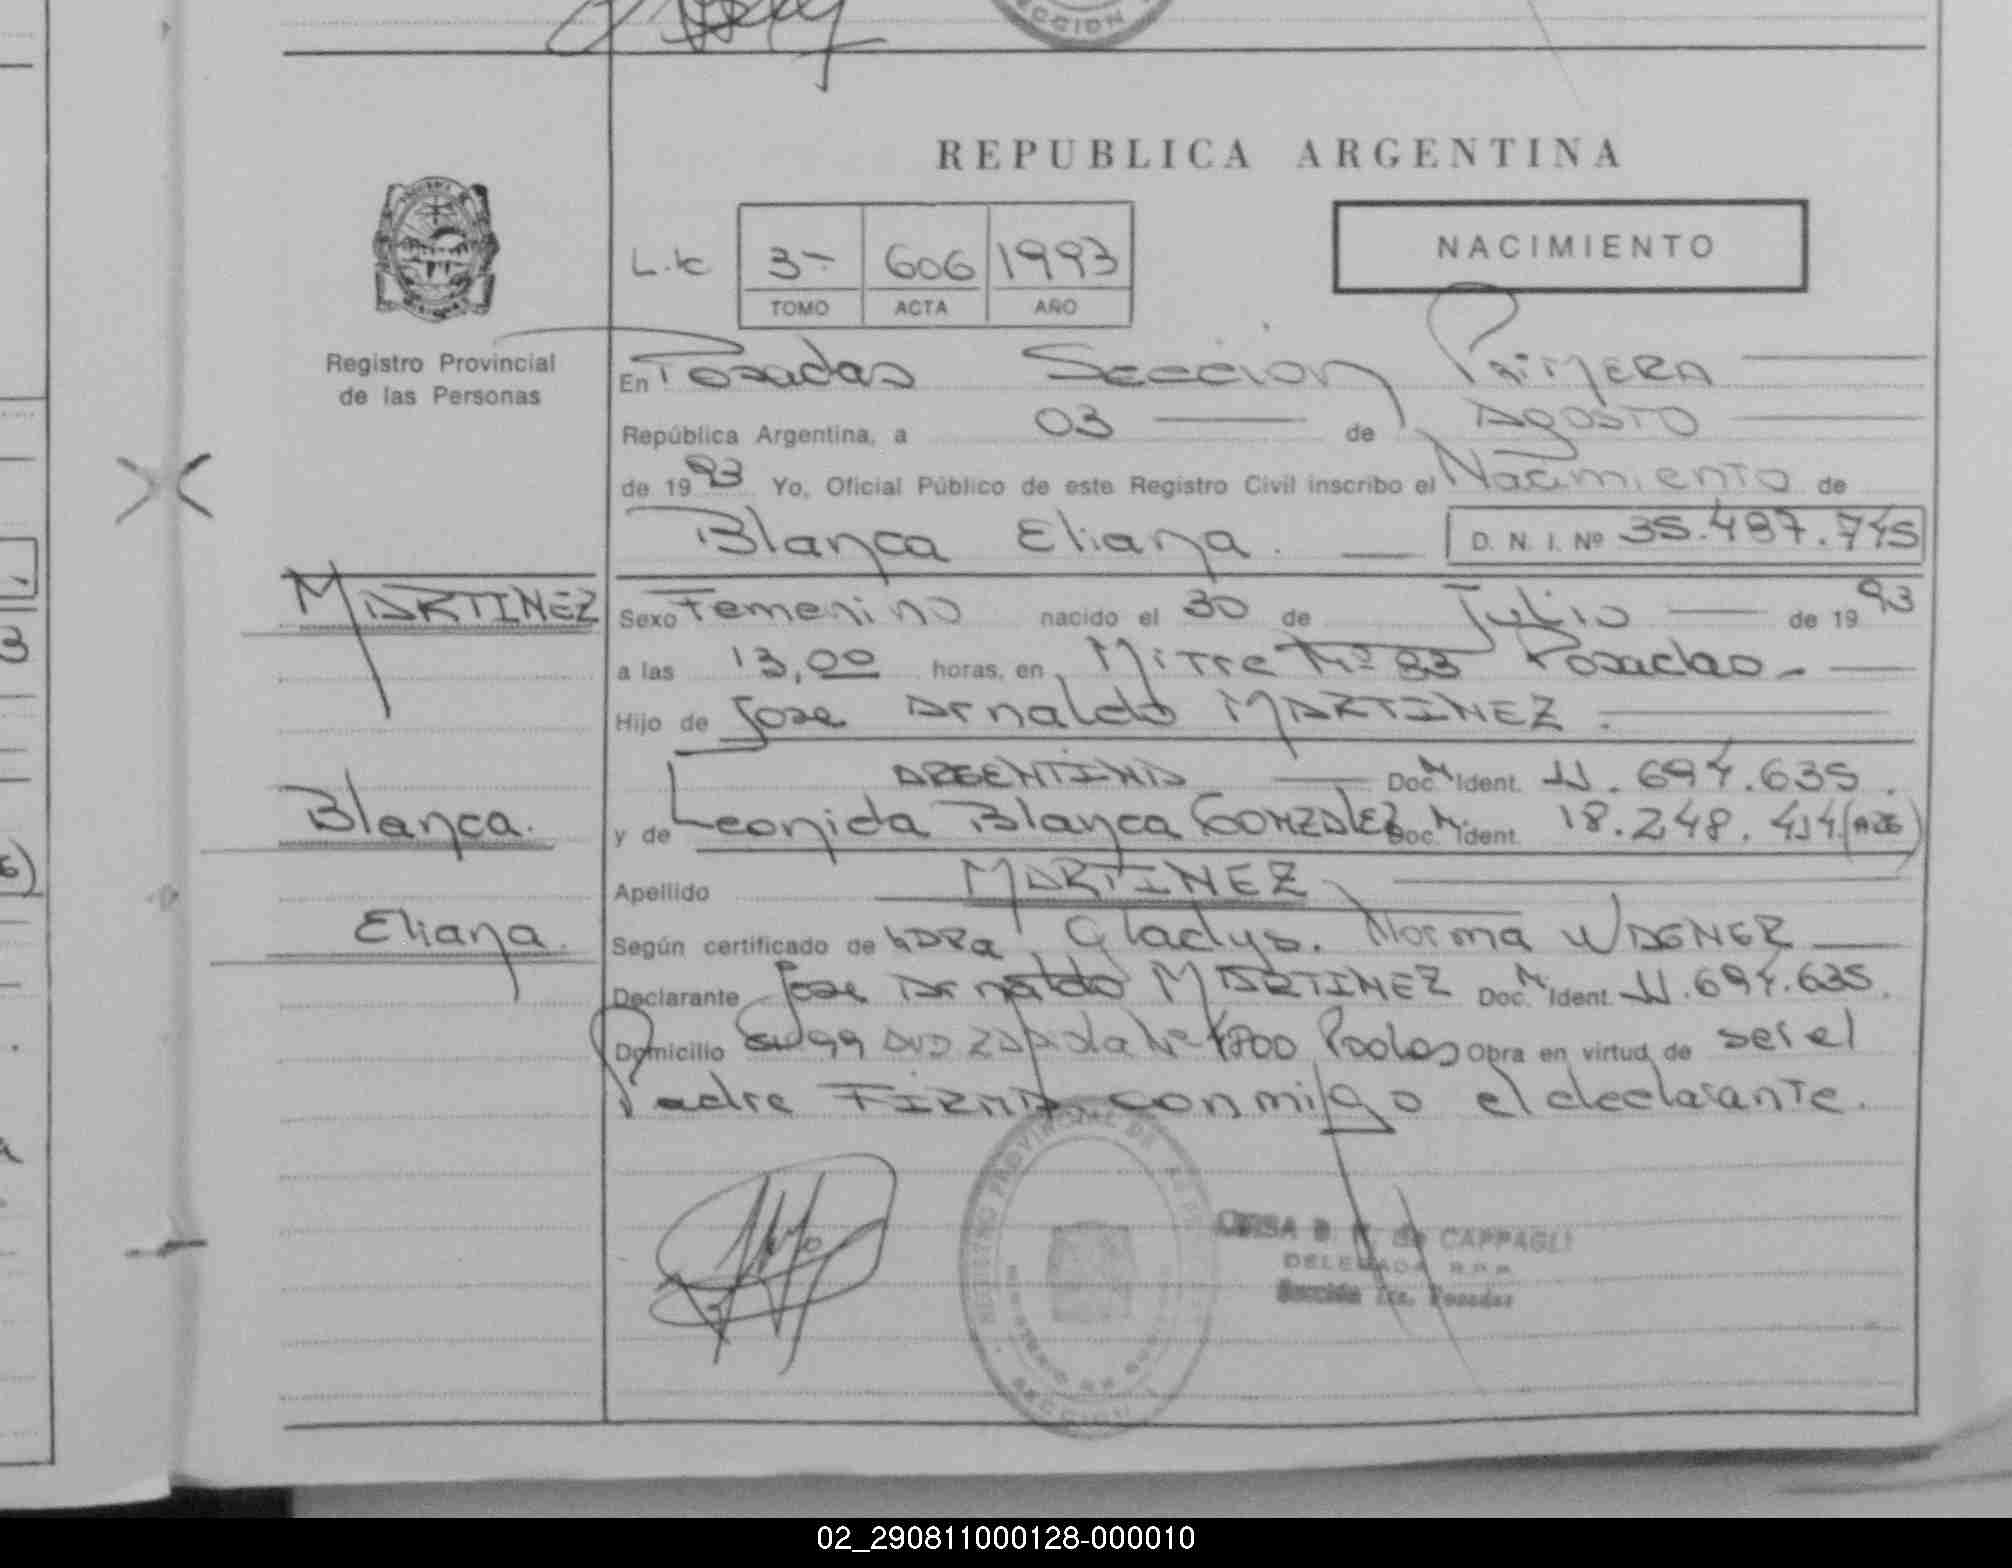 CCION
REPUBLICA ARGENTINA
NACIMIENTO
3 606 1993
TOMO ACTA AÑO
Registro Provincial
de las Personas
En Posadas Seccion Primera
República Argentina, a 03 de Agosto
de 1993 Yo, Oficial Público de este Registro Civil inscribo el Nacimiento de
Blanca Eliana. D. N. I. Nº 35.487.745
MARTINEZ
Sexo Femenino nacido el 30 de Julio de 1993
a las 13,00 horas, en Mitre Nº 83 Posadas
Hijo de Jose Arnaldo MARTINEZ.
ARGENTINA Doc. N. Ident. 11.694.635.
Blanca.
y de Leonida Blanca GONZALEZ Doc. N. Ident. 18.248.414 (
Apellido MARTINEZ
Eliana.
Según certificado de Gladys. Norma WAGNER
Declarante Jose Arnaldo MARTINEZ Doc. N. Ident. 11.694.635.
Domicilio Nº Obra en virtud de ser el
Padre FIRMA conmigo el declarante.
REGISTRO PROVINCIAL DE
SECCION
de CAPPAGLI
DELEGADA R.P.P.
Sección 1ra. Posadas
02_290811000128-000010